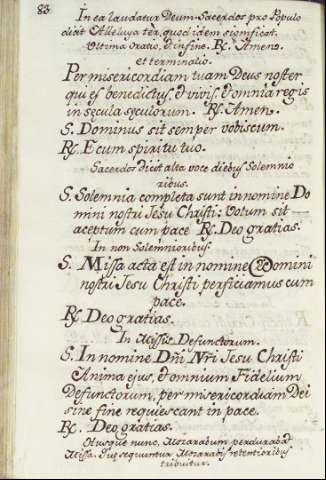 83
In ea laudatur Deum Sacerdos pro Populo
dicit Alleluya ter, quod idem significat.
Ultima oratio, et in fine. R. Amen.
et terminatio.
Per misericordiam tuam Deus noster
qui es benedictus, & vivis, & omnia regis
in sęcula sęculorum. R. Amen.
S. Dominus sit semper vobiscum.
R. E cum spiritu tuo.
Sacerdos dicit alta voce diebus Solemnio
ribus.
S. Solemnia completa sunt in nomine Do
mini nostri Jesu Christi: votum sit
aceptum cum pace R. Deo gratias.
In non Solemnioribus.
S. Missa acta est in nomine Domini
nostri Jesu Christi perficiamus cum
pace.
R. Deo gratias.
In Missis Defunctorum.
S. In nomine Dñi Nři Jesu Christi
Anima ejus, & omnium Fidelium
Defunctorum, per misericordiam Dei
sine fine requiescant in pace.
R. Deo gratias.
nunc, Mozarabum perdurabat
Missa. sequuntur Mozarabis
tribuitur.